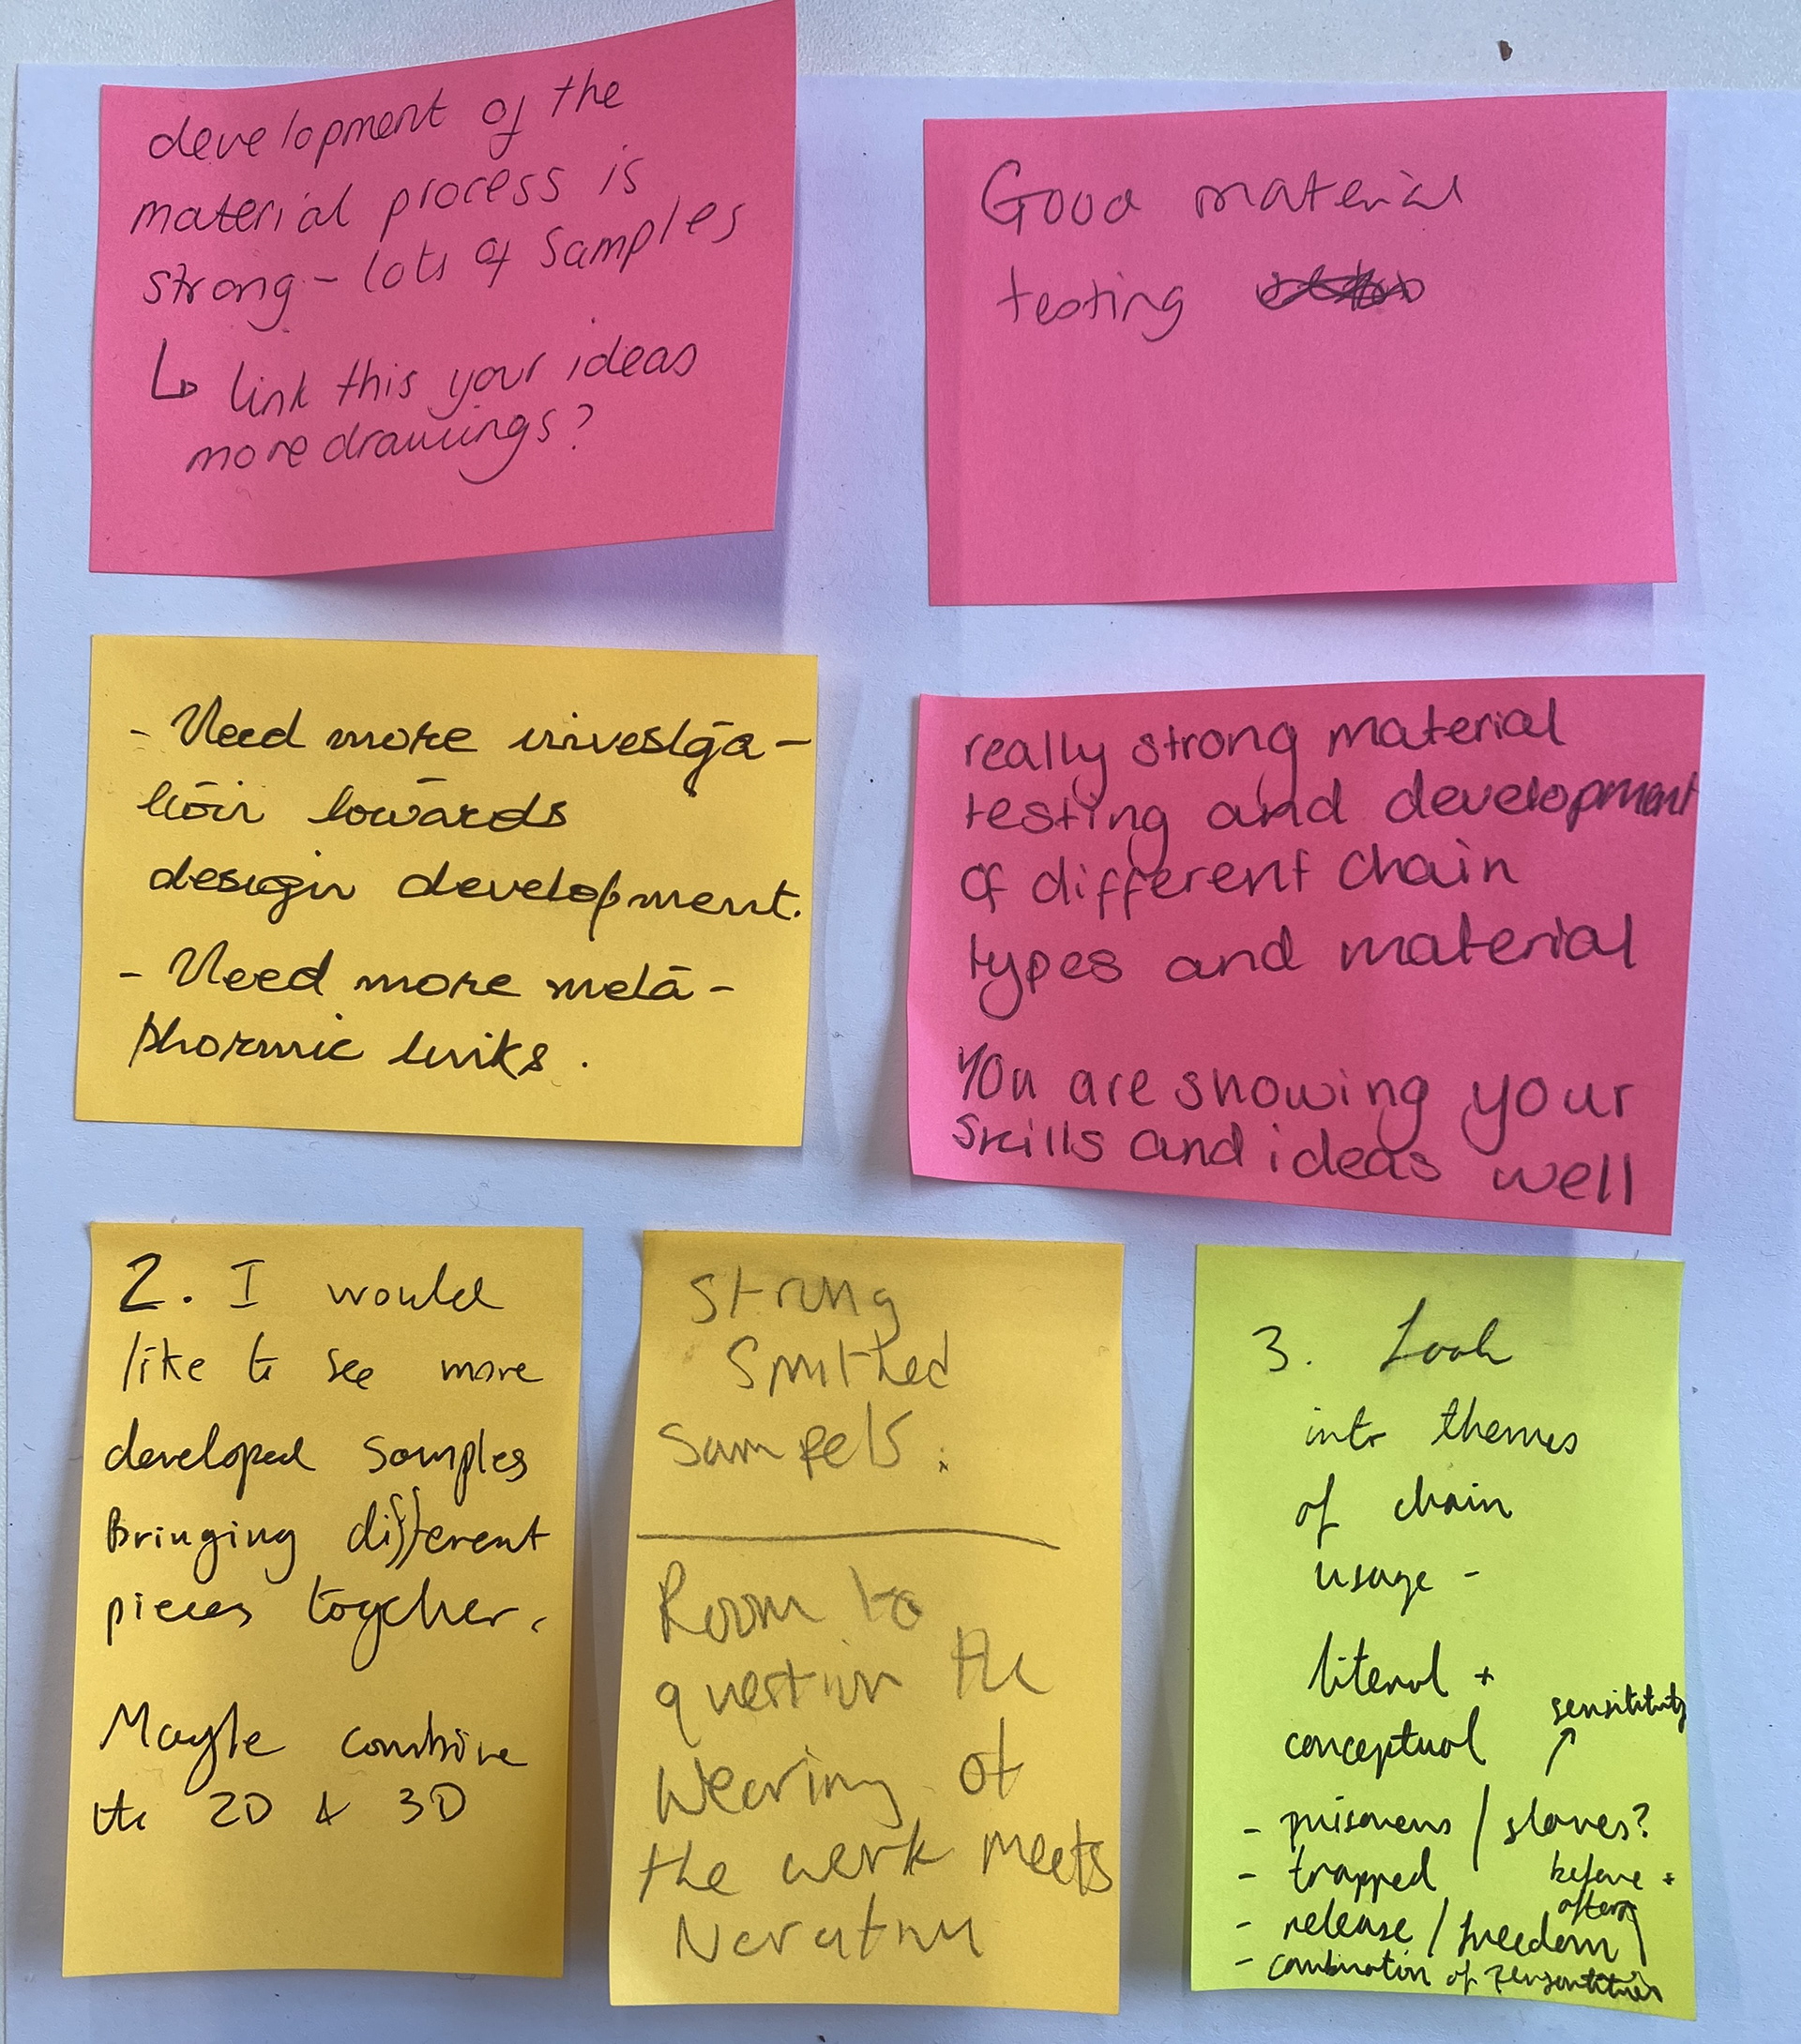 development of the
material process is
strong - lots of samples
↳ link this your ideas
more drawings?
Good material
testing
- Need more investiga-
tion towards
design development.
- Need more meta-
phormic links.
really strong material
testing and development
of different chain
types and material
You are showing your
skills and ideas well
2. I would
like to see more
developed samples
Bringing different
pieces together.
Maybe combine
the 2D & 3D
Strong
Smithed
Sampels.
Room to
question the
Wearing of
the work meets
3. Look
into themes
of chain
usage -
literal +
conceptual
- prisoners / slaves?
- trapped
before +
after
- release / freedom
- combination of